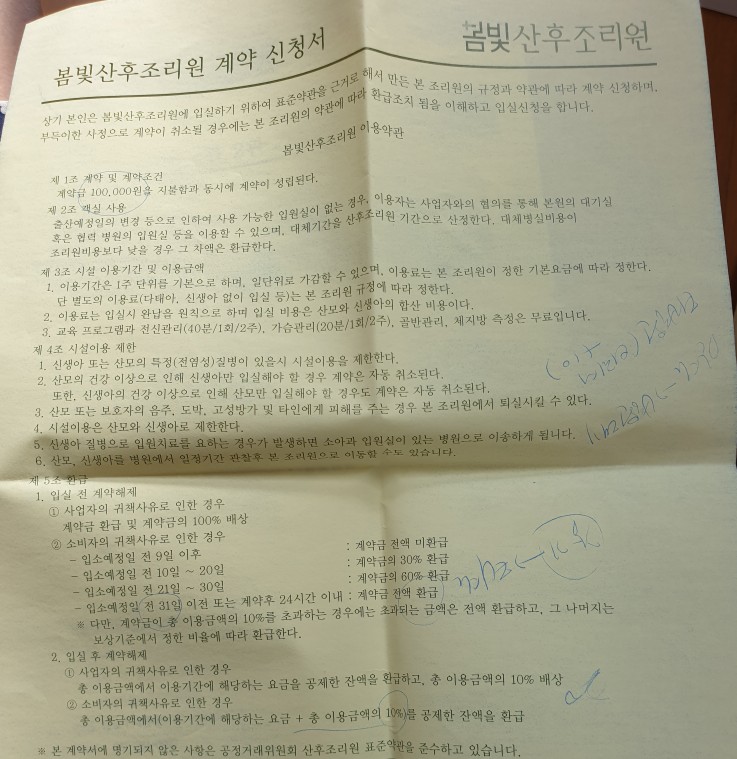 봄빛산후조리원 계약 신청서
봄빛산후조리원
상기 본인은 봄빛산후조리원에 입실하기 위하여 표준약관을 근거로 해서 만든 본 조리원의 규정과 약관에 따라 계약 신청하며,
부득이한 사정으로 계약이 취소될 경우에는 본 조리원의 약관에 따라 환급조치 됨을 이해하고 입실신청을 합니다.
봄빛산후조리원 이용약관
제 1조 계약 및 계약조건
계약금 100,000원을 지불함과 동시에 계약이 성립된다.
제 2조 객실 사용
출산예정일의 변경 등으로 인하여 사용 가능한 입원실이 없는 경우, 이용자는 사업자와의 협의를 통해 본원의 대기실
혹은 협력 병원의 입원실 등을 이용할 수 있으며, 대체기간을 산후조리원 기간으로 산정한다. 대체병실비용이
조리원비용보다 낮을 경우 그 차액은 환급한다.
제 3조 시설 이용기간 및 이용금액
1. 이용기간은 1주 단위를 기본으로 하며, 일단위로 가감할 수 있으며, 이용료는 본 조리원이 정한 기본요금에 따라 정한다.
단 별도의 이용료(다태아, 신생아 없이 입실 등)는 본 조리원 규정에 따라 정한다.
2. 이용료는 입실시 완납을 원칙으로 하며 입실 비용은 산모와 신생아의 합산 비용이다.
3. 교육 프로그램과 전신관리(40분/1회/2주), 가슴관리(20분/1회/2주), 골반관리, 체지방 측정은 무료입니다.
제 4조 시설이용 제한
1. 신생아 또는 산모의 특정(전염성)질병이 있을시 시설이용을 제한한다.
2. 산모의 건강 이상으로 인해 신생아만 입실해야 할 경우 계약은 자동 취소된다.
또한, 신생아의 건강 이상으로 인해 산모만 입실해야 할 경우도 계약은 자동 취소된다.
3. 산모 또는 보호자의 음주, 도박, 고성방가 및 타인에게 피해를 주는 경우 본 조리원에서 퇴실시킬 수 있다.
4. 시설이용은 산모와 신생아로 제한한다.
5. 신생아 질병으로 입원치료를 요하는 경우가 발생하면 소아과 입원실이 있는 병원으로 이송하게 됩니다.
6. 산모, 신생아를 병원에서 일정기간 관찰후 본 조리원으로 이동할 수도 있습니다.
제 5조 환급
1. 입실 전 계약해제
① 사업자의 귀책사유로 인한 경우
계약금 환급 및 계약금의 100% 배상
② 소비자의 귀책사유로 인한 경우
- 입소예정일 전 9일 이후 : 계약금 전액 미환급
- 입소예정일 전 10일 ~ 20일 : 계약금의 30% 환급
- 입소예정일 전 21일 ~ 30일 : 계약금의 60% 환급
- 입소예정일 전 31일 이전 또는 계약후 24시간 이내 : 계약금 전액 환급
※ 다만, 계약금이 총 이용금액의 10%를 초과하는 경우에는 초과되는 금액은 전액 환급하고, 그 나머지는
보상기준에서 정한 비율에 따라 환급한다.
2. 입실 후 계약해제
① 사업자의 귀책사유로 인한 경우
총 이용금액에서 이용기간에 해당하는 요금을 공제한 잔액을 환급하고, 총 이용금액의 10% 배상
② 소비자의 귀책사유로 인한 경우
총 이용금액에서(이용기간에 해당하는 요금 + 총 이용금액의 10%)를 공제한 잔액을 환급
※ 본 계약서에 명기되지 않은 사항은 공정거래위원회 산후조리원 표준약관을 준수하고 있습니다.